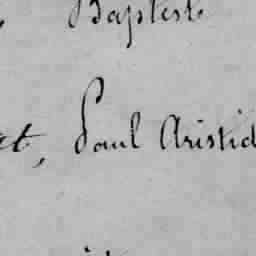 Baptiste
et, Paul Aristid